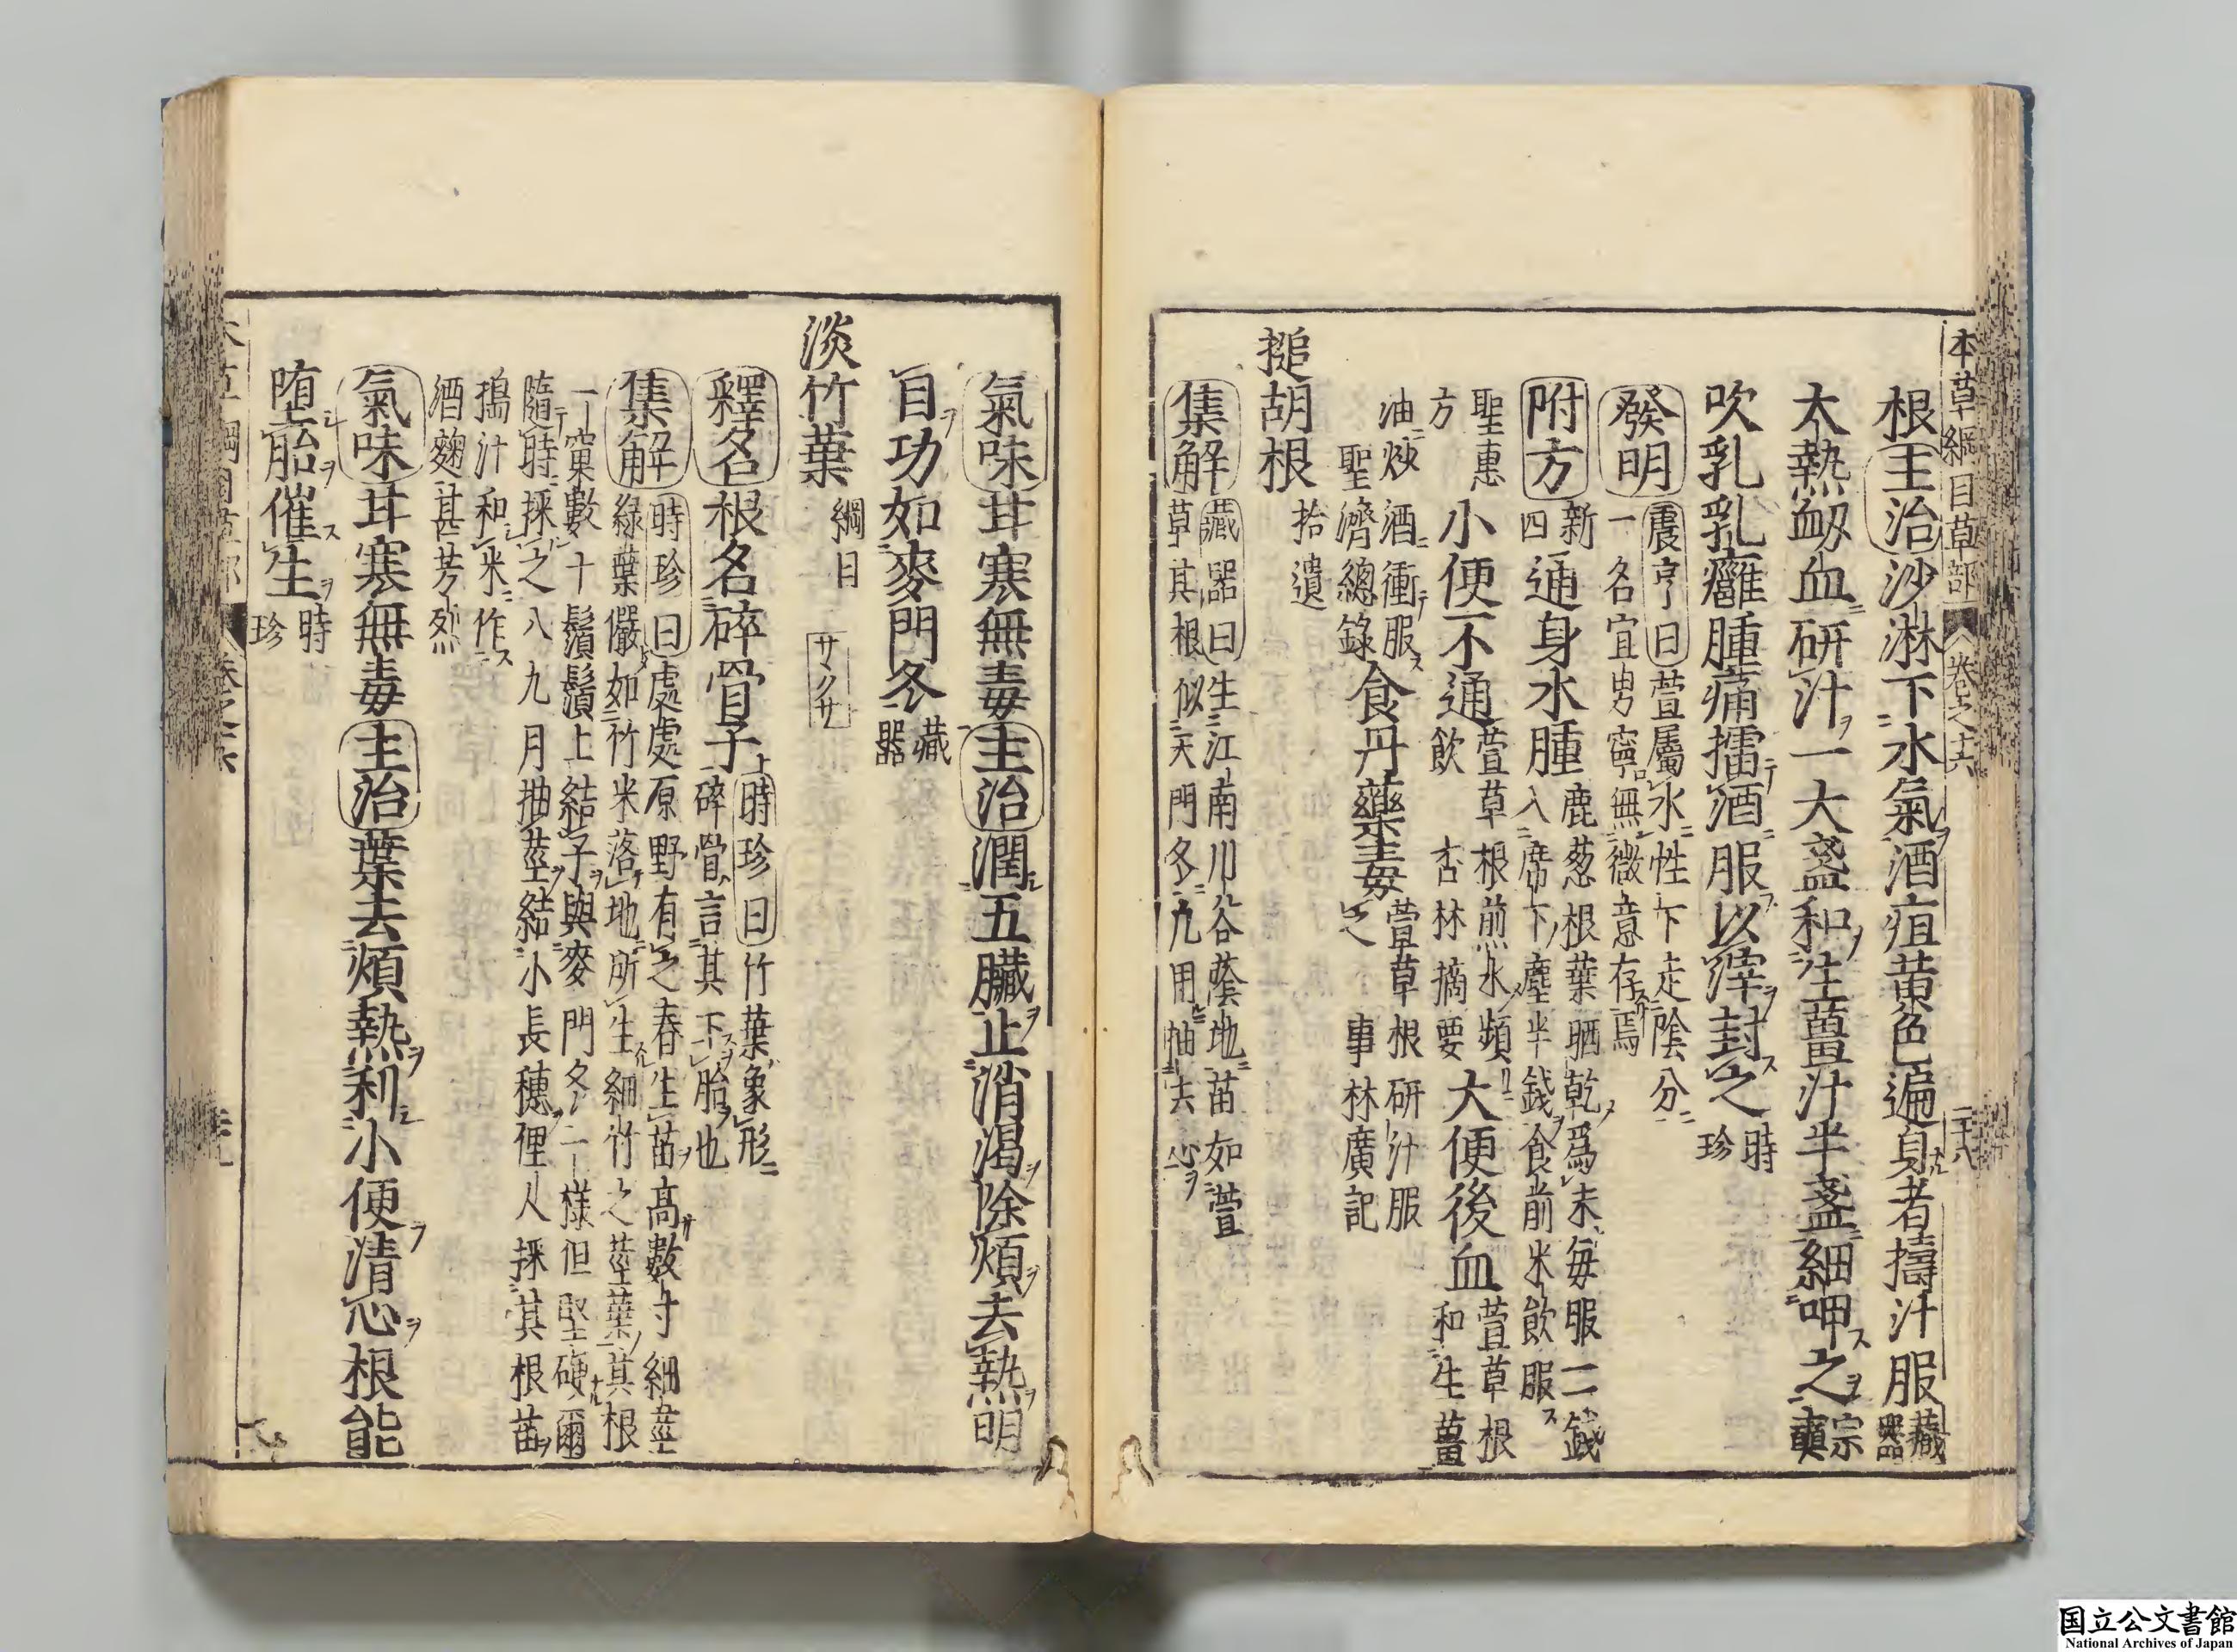 本草綱目草部　卷之十六　二十八
根主治沙淋下水氣酒疸黃色遍身者擣汁服藏器
大熱衂血研汁一大盞和生薑汁半盞細呷之宗奭
吹乳乳癰腫痛擂酒服以滓封之時珍
發明震亨曰萱屬水性下走陰分
一名宜男寧無微意存焉
附方新四通身水腫鹿葱根葉晒乾爲末每服二錢
入席下塵半錢食前米飲服
聖惠方小便不通萱草根煎水頻飲杏林摘要大便後血萱草根和生薑
油炒酒衝服聖濟總錄食丹藥毒萱草根研汁服之事林廣記
搥胡根拾遺
集解藏器曰生江南川谷蔭地苗如萱
草其根似天門冬凡用抽去心
氣味甘寒無毒主治潤五臟止消渴除煩去熱明
目功如麥門冬藏器
淡竹葉綱目　サヽクサ
釋名根名碎骨子時珍曰竹葉象形
碎骨言其下胎也
集解時珍曰處處原野有之春生苗高數寸細莖
綠葉儼如竹米落地所生細竹之莖葉其根
一窠數十鬚鬚上結子與麥門冬一樣但堅硬爾
隨時採之八九月抽莖結小長穗俚人採其根苗
搗汁和米作
酒麴甚芳烈
氣味甘寒無毒主治葉去煩熱利小便清心根能
堕胎催生時珍
國立公文書館
National Archives of Japan